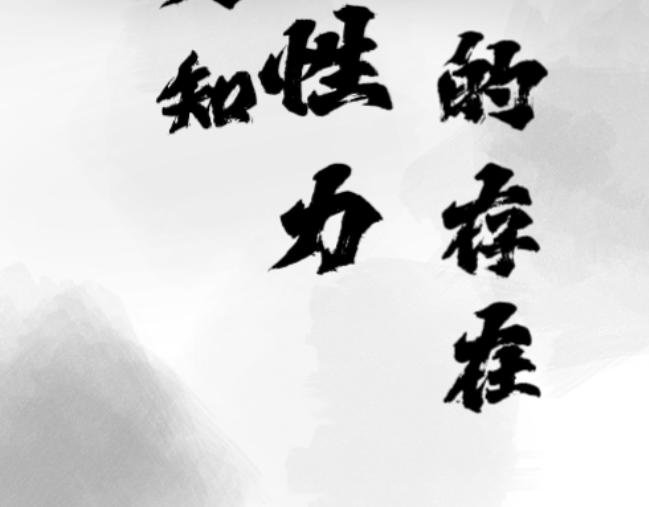 的存在
性力
知